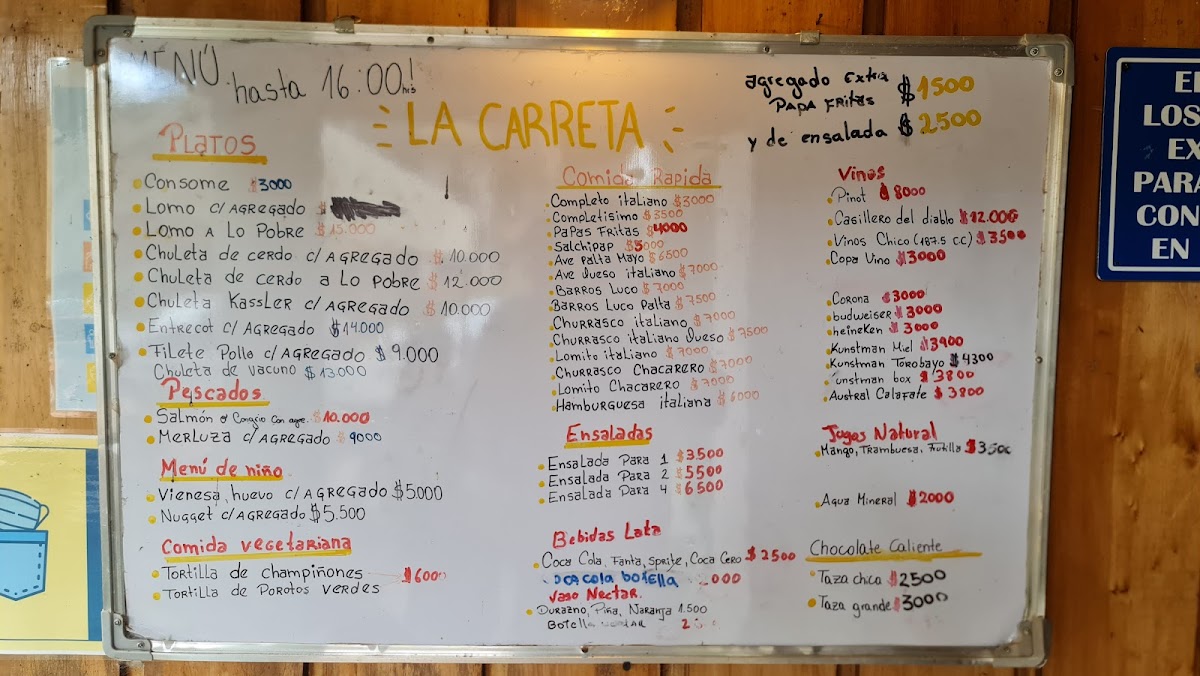 MENÚ hasta 16:00! hrs
LA CARRETA
agregado extra
PAPA FRITAS $1500
y de ensalada $2500
PLATOS
Consome $3000
Lomo c/AGREGADO $
Lomo A Lo Pobre $13.000
Chuleta de cerdo c/AGREGADO $10.000
Chuleta de cerdo a Lo pobre $12.000
Chuleta Kassler c/AGREGADO $10.000
Entrecot c/AGREGADO $14.000
Filete Pollo c/AGREGADO $9.000
Chuleta de vacuno $13.000
Pescados
Salmón o Congrio con agre. $10.000
Merluza c/AGREGADO $9000
Menú de niño
Vienesa, huevo c/AGREGADO $5.000
Nugget c/AGREGADO $5.500
Comida vegetariana
Tortilla de champiñones $6000
Tortilla de Porotos verdes
Comida Rapida
Completo italiano $3000
Completisimo $3500
PaPas Fritas $4000
Salchipap $5000
Ave palta Mayo $6500
Ave Queso italiano $7000
Barros Luco $7000
Barros Luco Palta $7500
Churrasco italiano $7000
Churrasco italiano Queso $7500
Lomito italiano $7000
Churrasco Chacarero $7000
Lomito Chacarero $7000
Hamburguesa italiana $6000
Ensaladas
Ensalada Para 1 $3500
Ensalada Para 2 $5500
Ensalada Para 4 $6500
Bebidas Lata
Coca Cola, Fanta, Sprite, Coca Cero $2500
coca cola botella 2000
Vaso Nectar.
Durazno, Piña, Naranja 1.500
Botella
Vinos
Pinot $8000
Casillero del diablo $12.000
Vinos Chico (187.5 cc) $3500
Copa Vino $3000
Corona $3000
budweiser $3000
heineken $3000
Kunstman Miel $3900
Kunstman Torobayo $4300
Kunstman box $3800
Austral Calafate $3800
Jugos Natural
Mango, Frambuesa, Frutilla $3500
Agua Mineral $2000
Chocolate Caliente
Taza chica $2500
Taza grande $3000
LOS
EX
PARA
CON
EN